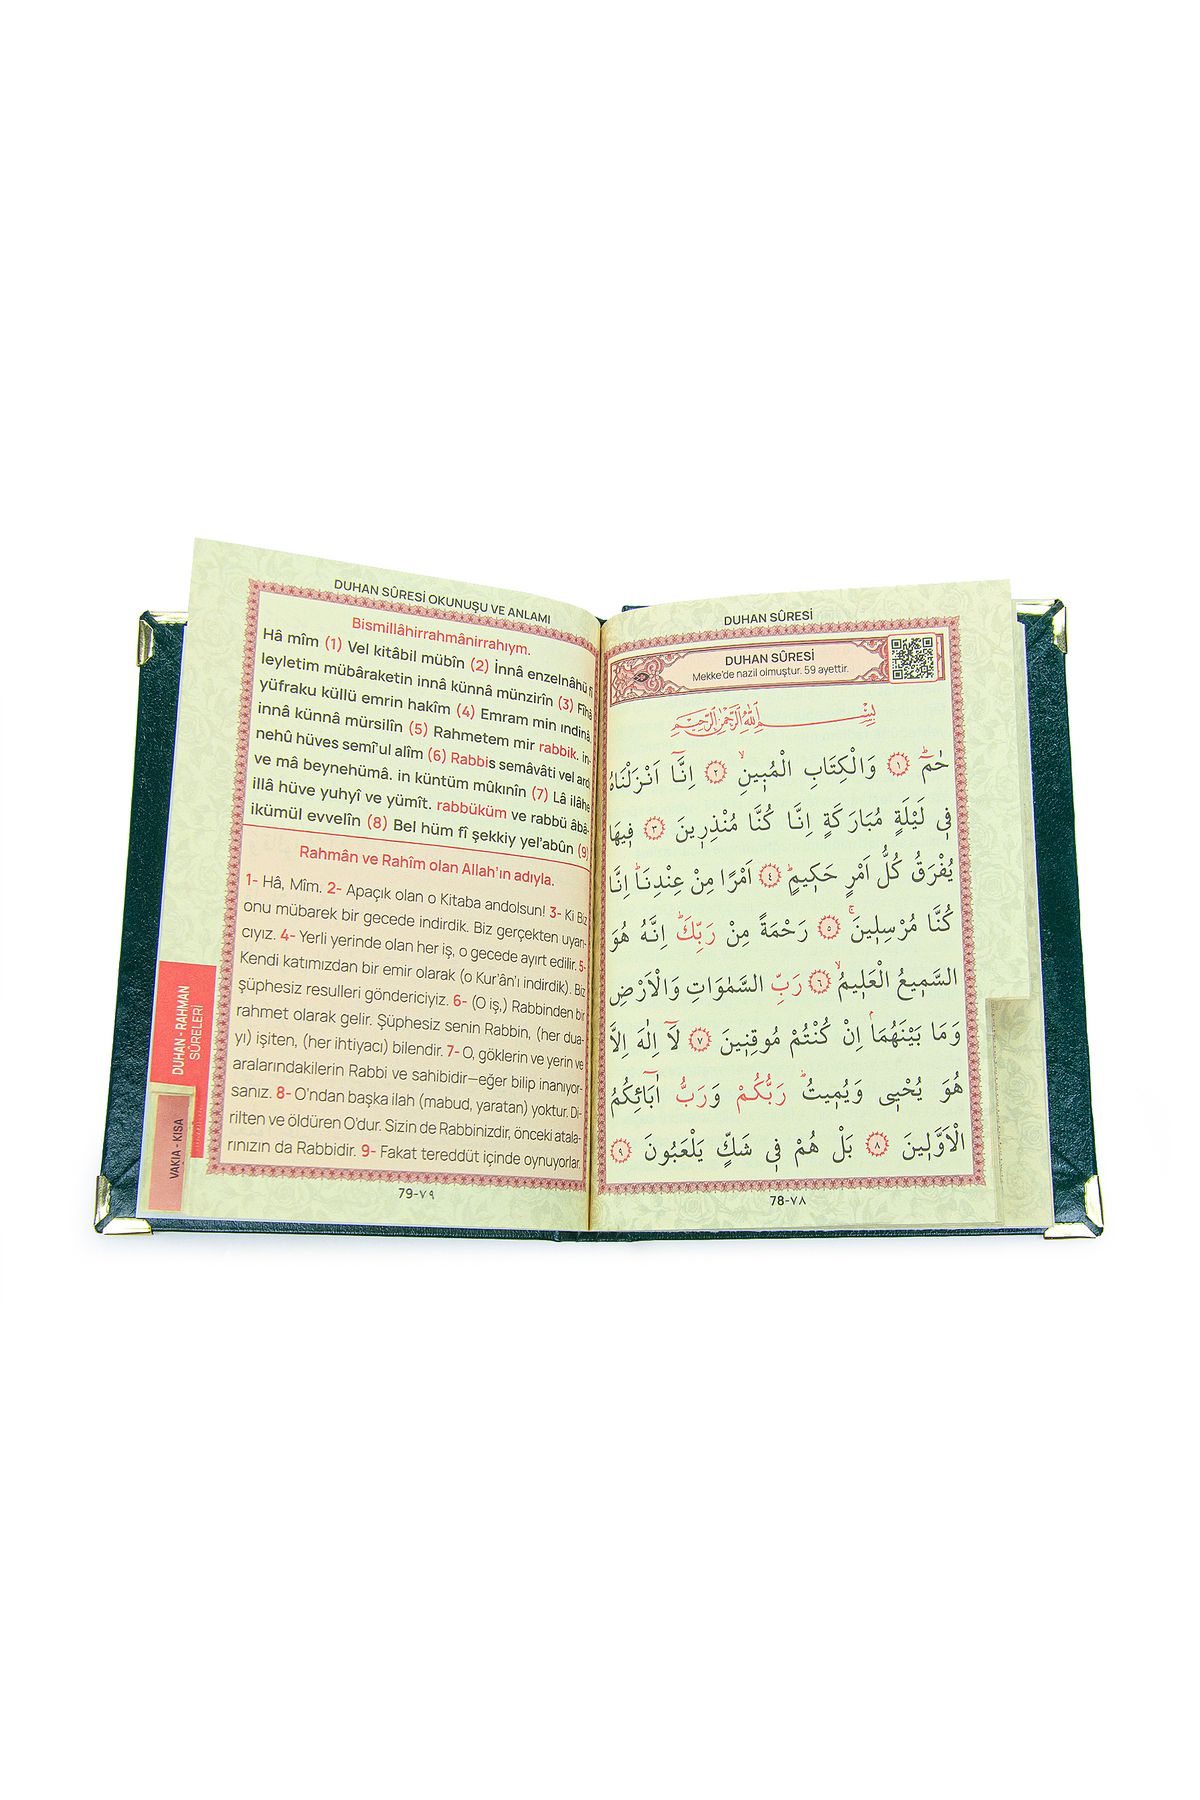 DUHAN SÛRESİ OKUNUŞU VE ANLAMI
Bismillâhirrahmânirrahıym.
Hâ mîm (1) Vel kitâbil mübîn (2) İnnâ enzelnâhü fî
leyletim mübâraketin innâ künnâ münzirîn (3) Fîhâ
yüfraku küllü emrin hakîm (4) Emram min ındinâ,
innâ künnâ mürsilîn (5) Rahmetem mir rabbik. in-
nehû hüves semî'ul alîm (6) Rabbis semâvâti vel ard
ve mâ beynehümâ. in küntüm mûkınîn (7) Lâ ilâhe
illâ hüve yuhyî ve yümît. rabbüküm ve rabbü âbâ-
ikümül evvelîn (8) Bel hüm fî şekkiy yel'abûn (9)
Rahmân ve Rahîm olan Allah'ın adıyla.
1- Hâ, Mîm. 2- Apaçık olan o Kitaba andolsun! 3- Ki Biz
onu mübarek bir gecede indirdik. Biz gerçekten uyarı-
cıyız. 4- Yerli yerinde olan her iş, o gecede ayırt edilir. 5-
Kendi katımızdan bir emir olarak (o Kur'ân'ı indirdik). Biz
şüphesiz resulleri göndericiyiz. 6- (O iş,) Rabbinden bir
rahmet olarak gelir. Şüphesiz senin Rabbin, (her dua-
yı) işiten, (her ihtiyacı) bilendir. 7- O, göklerin ve yerin ve
aralarındakilerin Rabbi ve sahibidir—eğer bilip inanıyor-
sanız. 8- O'ndan başka ilah (mabud, yaratan) yoktur. Di-
rilten ve öldüren O'dur. Sizin de Rabbinizdir, önceki atala-
rınızın da Rabbidir. 9- Fakat tereddüt içinde oynuyorlar.
79-٧٩
DUHAN - RAHMAN
SÛRELERİ
VAKIA - KISA
DUHAN SÛRESİ
DUHAN SÛRESİ
Mekke'de nazil olmuştur. 59 ayettir.
بِسْمِ اللّٰهِ الرَّحْمٰنِ الرَّحِيمِ
حٰمٓ ۚ ﴿١﴾ وَالْكِتَابِ الْمُبِينِ ۙ ﴿٢﴾ اِنَّٓا اَنْزَلْنَاهُ
فِي لَيْلَةٍ مُبَارَكَةٍ اِنَّا كُنَّا مُنْذِرِينَ ﴿٣﴾ فِيهَا
يُفْرَقُ كُلُّ اَمْرٍ حَكِيمٍ ۙ ﴿٤﴾ اَمْرًا مِنْ عِنْدِنَا ۜ اِنَّا
كُنَّا مُرْسِلِينَ ۚ ﴿٥﴾ رَحْمَةً مِنْ رَبِّكَ ۜ اِنَّهُ هُوَ
السَّمِيعُ الْعَلِيمُ ۙ ﴿٦﴾ رَبِّ السَّمٰوَاتِ وَالْاَرْضِ
وَمَا بَيْنَهُمَا ۢ اِنْ كُنْتُمْ مُوقِنِينَ ﴿٧﴾ لَٓا اِلٰهَ اِلَّا
هُوَ يُحْيِي وَيُمِيتُ ۜ رَبُّكُمْ وَرَبُّ اٰبَٓائِكُمُ
الْاَوَّلِينَ ﴿٨﴾ بَلْ هُمْ فِي شَكٍّ يَلْعَبُونَ ﴿٩﴾
78-٧٨